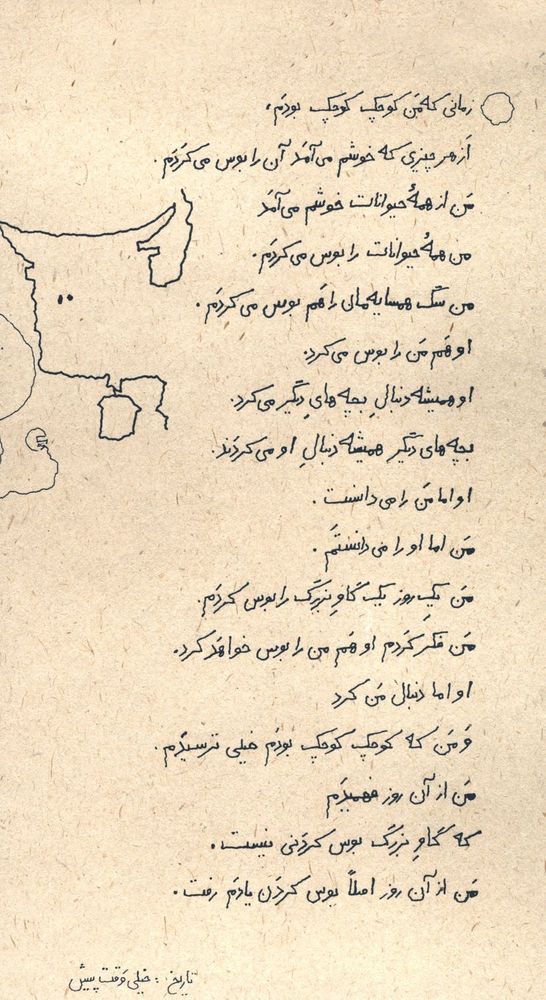 زمانی که مَن کوچک کوچک بودَم.
اَز هر چیزی که خوشَم می‌آمَد آن را بوس می‌کَردَم.
مَن از همهٔ حیوانات خوشَم می‌آمَد
من همهٔ حیوانات را بوس می‌کردَم.
من سَگ همسایه‌مان را هَم بوس می‌کردَم.
او هَم مَن را بوس می‌کرد.
او همیشه دنبالِ بچه‌هایِ دیگَر می‌کرد.
بچه‌های دیگَر همیشه دنبالِ او می‌کردَند.
او اما مَن را می‌دانست.
مَن اما او را می‌دانستَم.
مَن یک روز یک گاوِ بزرگ را بوس کردَم.
مَن فکر کَردَم او هَم من را بوس خواهَد کرد.
او اما دنبال مَن کرد
وَ مَن که کوچک کوچک بودَم خیلی ترسیدَم.
مَن از آن روز فهمیدَم
که گاوِ بزرگ بوس کردَنی نیست.
مَن از آن روز اصلاً بوس کردَن یادَم رفت.
تاریخ: خیلی وَقت پیش